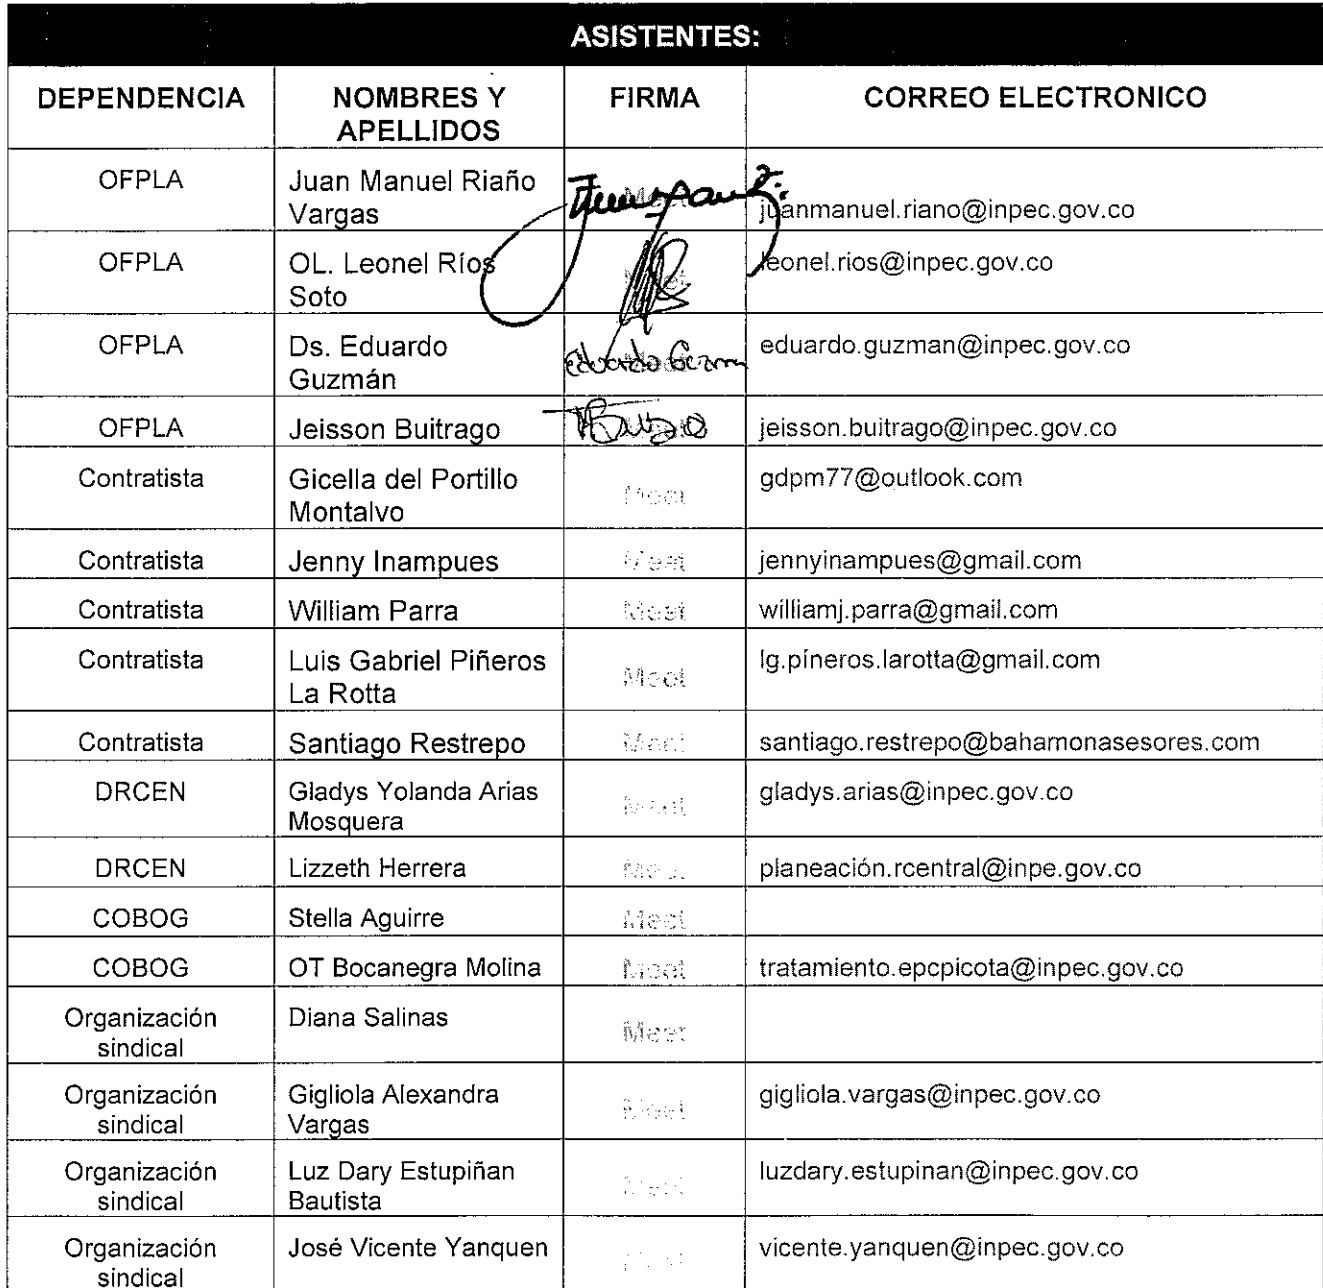 ASISTENTES:
DEPENDENCIA NOMBRES Y APELLIDOS FIRMA CORREO ELECTRONICO
OFPLA Juan Manuel Riaño Vargas Meet juanmanuel.riano@inpec.gov.co
OFPLA OL. Leonel Ríos Soto Meet leonel.rios@inpec.gov.co
OFPLA Ds. Eduardo Guzmán Eduardo Guzmn eduardo.guzman@inpec.gov.co
OFPLA Jeisson Buitrago jeisson.buitrago@inpec.gov.co
Contratista Gicella del Portillo Montalvo Meet gdpm77@outlook.com
Contratista Jenny Inampues Meet jennyinampues@gmail.com
Contratista William Parra Meet williamj.parra@gmail.com
Contratista Luis Gabriel Piñeros La Rotta Meet lg.píneros.larotta@gmail.com
Contratista Santiago Restrepo Meet santiago.restrepo@bahamonasesores.com
DRCEN Gladys Yolanda Arias Mosquera Meet gladys.arias@inpec.gov.co
DRCEN Lizzeth Herrera Meet planeación.rcentral@inpe.gov.co
COBOG Stella Aguirre Meet
COBOG OT Bocanegra Molina Meet tratamiento.epcpicota@inpec.gov.co
Organización sindical Diana Salinas Meet
Organización sindical Gigliola Alexandra Vargas Meet gigliola.vargas@inpec.gov.co
Organización sindical Luz Dary Estupiñan Bautista Meet luzdary.estupinan@inpec.gov.co
Organización sindical José Vicente Yanquen Meet vicente.yanquen@inpec.gov.co